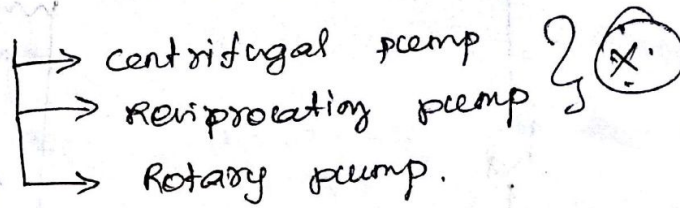 → centrifugal pump
→ Reciprocating pump
→ Rotary pump.